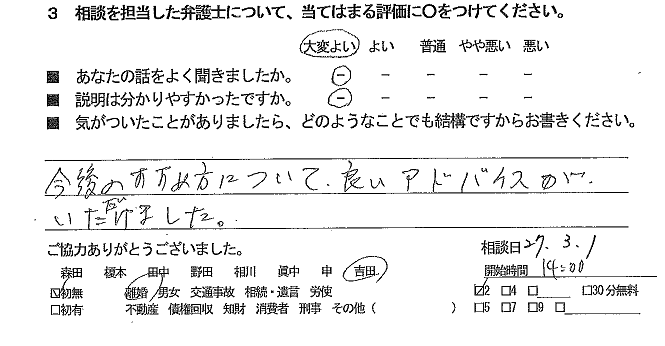 3 相談を担当した弁護士について、当てはまる評価に〇をつけてください。
大変よい よい 普通 やや悪い 悪い
■ あなたの話をよく聞きましたか。 － － － － －
■ 説明は分かりやすかったですか。 － － － － －
■ 気がついたことがありましたら、どのようなことでも結構ですからお書きください。
今後のすすめ方について、良いアドバイスが
いただけました。
ご協力ありがとうございました。 相談日 27. 3. 1
森田 榎本 田中 野田 相川 眞中 申 吉田 開始時間 14:00
☑初無 離婚 男女 交通事故 相続・遺言 労使 ☑2 □4 □ □30分無料
□初有 不動産 債権回収 知財 消費者 刑事 その他（ ） □5 □7 □9 □